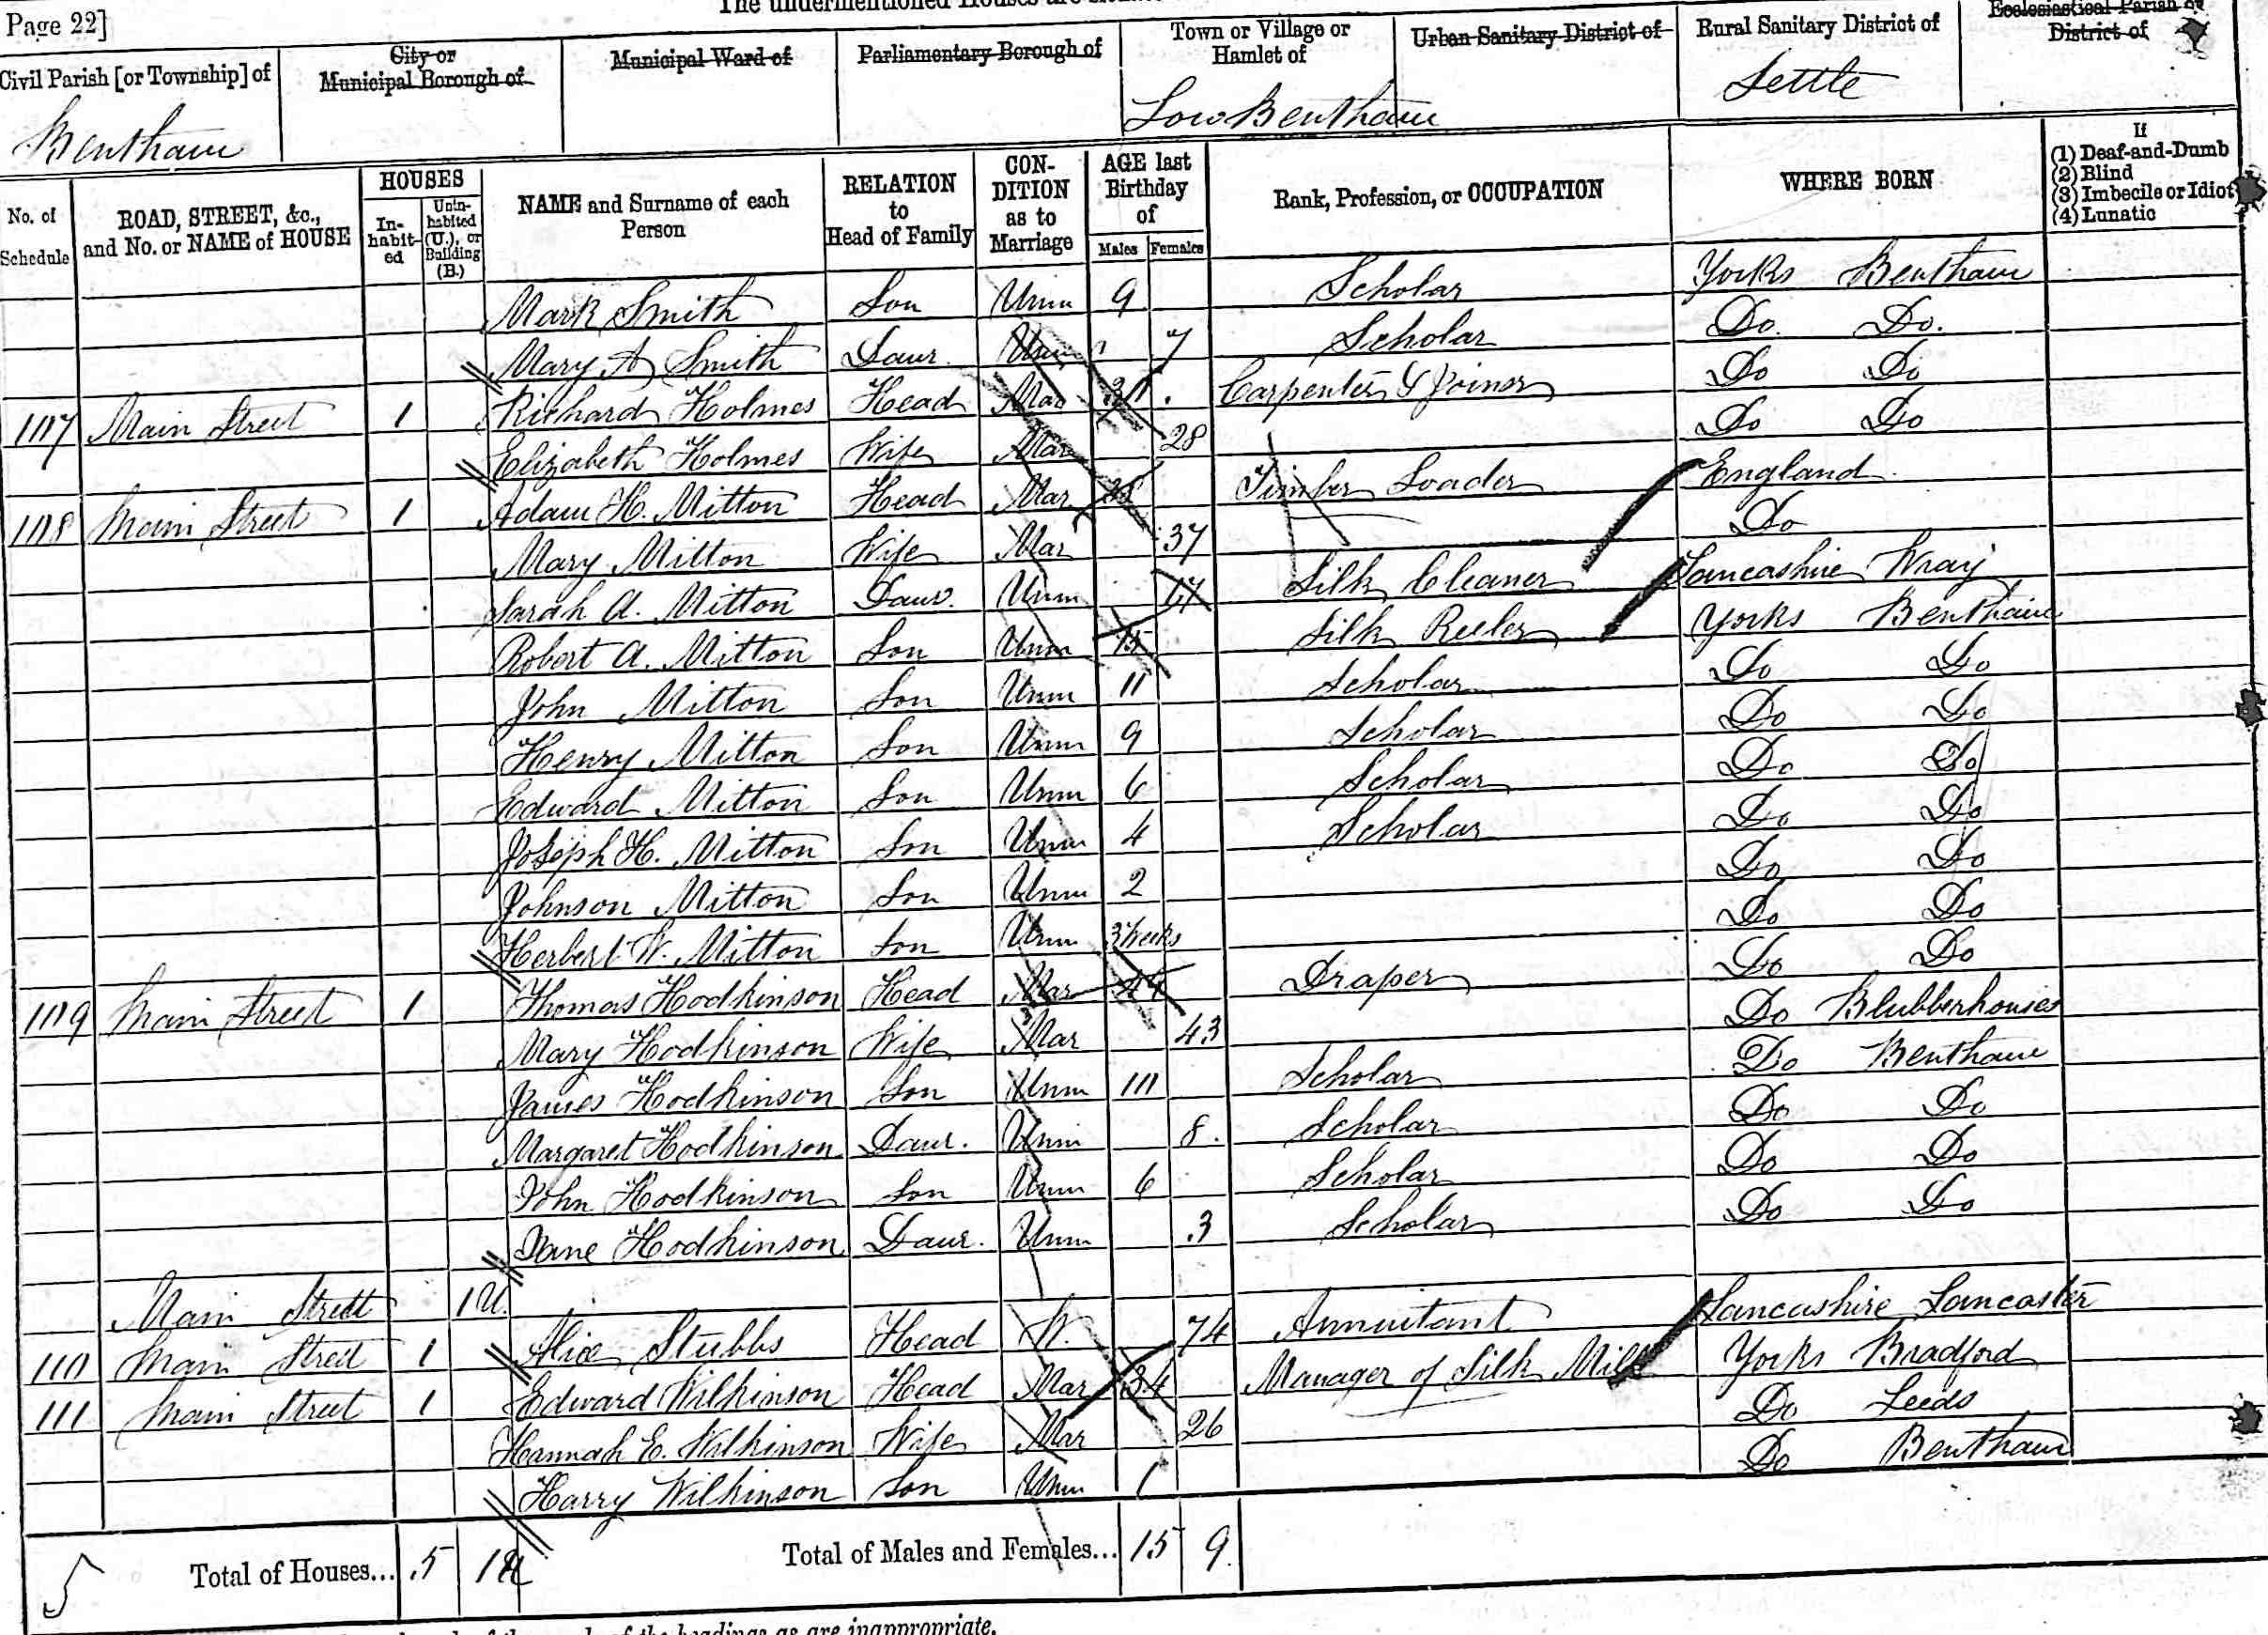 Page 22]
The undermentioned Houses are
Civil Parish [or Township] of
City or Municipal Borough of
Municipal Ward of
Parliamentary Borough of
Town or Village or Hamlet of
Urban Sanitary District of
Rural Sanitary District of
Ecclesiastical Parish or District of
Bentham Low Bentham Settle
No. of Schedule
ROAD, STREET, &c., and No. or NAME of HOUSE
HOUSES
In-habit-ed
Unin-habited (U.), or Building (B.)
NAME and Surname of each Person
RELATION to Head of Family
CON-DITION as to Marriage
AGE last Birthday of
Males Females
Rank, Profession, or OCCUPATION
WHERE BORN
If
(1) Deaf-and-Dumb
(2) Blind
(3) Imbecile or Idiot
(4) Lunatic
Mark Smith Son Unm 9 Scholar Yorks Bentham
Mary A Smith Daur. Unm 7 Scholar Do. Do.
107 Main Street 1 Richard Holmes Head Mar Carpenter & Joiner Do Do
Elizabeth Holmes Wife Mar 28 Do Do
108 Main Street 1 Adam H. Mitton Head Mar 38 Timber Loader England
Mary Mitton Wife Mar 37 Do
Sarah A. Mitton Daur. Unm 17 Silk Cleaner Lancashire Wray
Robert A. Mitton Son Unm 15 Silk Reeler Yorks Bentham
John Mitton Son Unm 11 Scholar Do Do
Henry Mitton Son Unm 9 Scholar Do Do
Edward Mitton Son Unm 6 Scholar Do Do
Joseph H. Mitton Son Unm 4 Scholar Do Do
Johnson Mitton Son Unm 2 Do Do
Herbert W. Mitton Son Unm 3 Weeks Do Do
109 Main Street 1 Thomas Hodkinson Head Mar 44 Draper Do Do
Mary Hodkinson Wife Mar 43 Do Blubberhouses
James Hodkinson Son Unm 10 Scholar Do Bentham
Margaret Hodkinson Daur. Unm 8. Scholar Do Do
John Hodkinson Son Unm 6 Scholar Do Do
Jane Hodkinson Daur. Unm 3 Scholar Do Do
Main Street 1 U.
110 Main Street 1 Alice Stubbs Head W. 74 Annuitant Lancashire Lancaster
111 Main Street 1 Edward Wilkinson Head Mar 34 Manager of Silk Mill Yorks Bradford
Hannah E. Wilkinson Wife Mar 26 Do Leeds
Harry Wilkinson Son Unm 1 Do Bentham
Total of Houses... 5 1U
Total of Males and Females... 15 9
of the headings as are inappropriate.